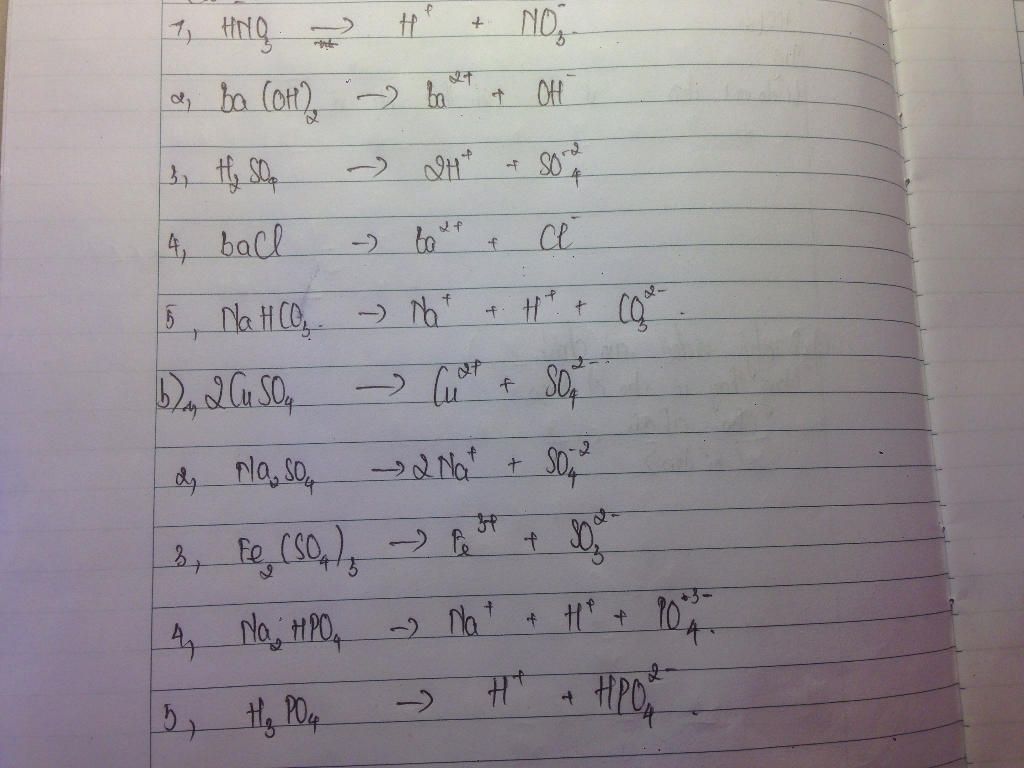 1, HNO₃ → H⁺ + NO₃⁻.
2, Ba(OH)₂ → Ba²⁺ + OH⁻
3, H₂SO₄ → 2H⁺ + SO₄⁻²
4, BaCl → Ba²⁺ + Cl⁻
5, NaHCO₃. → Na⁺ + H⁺ + CO₃²⁻.
b) 1, 2CuSO₄ → Cu²⁺ + SO₄²⁻
2, Na₂SO₄ → 2Na⁺ + SO₄⁻²
3, Fe₂(SO₄)₃ → Fe³⁺ + SO₃²⁻
4, Na₂HPO₄ → Na⁺ + H⁺ + PO₄⁺³⁻.
5, H₃PO₄ → H⁺ + HPO₄²⁻.